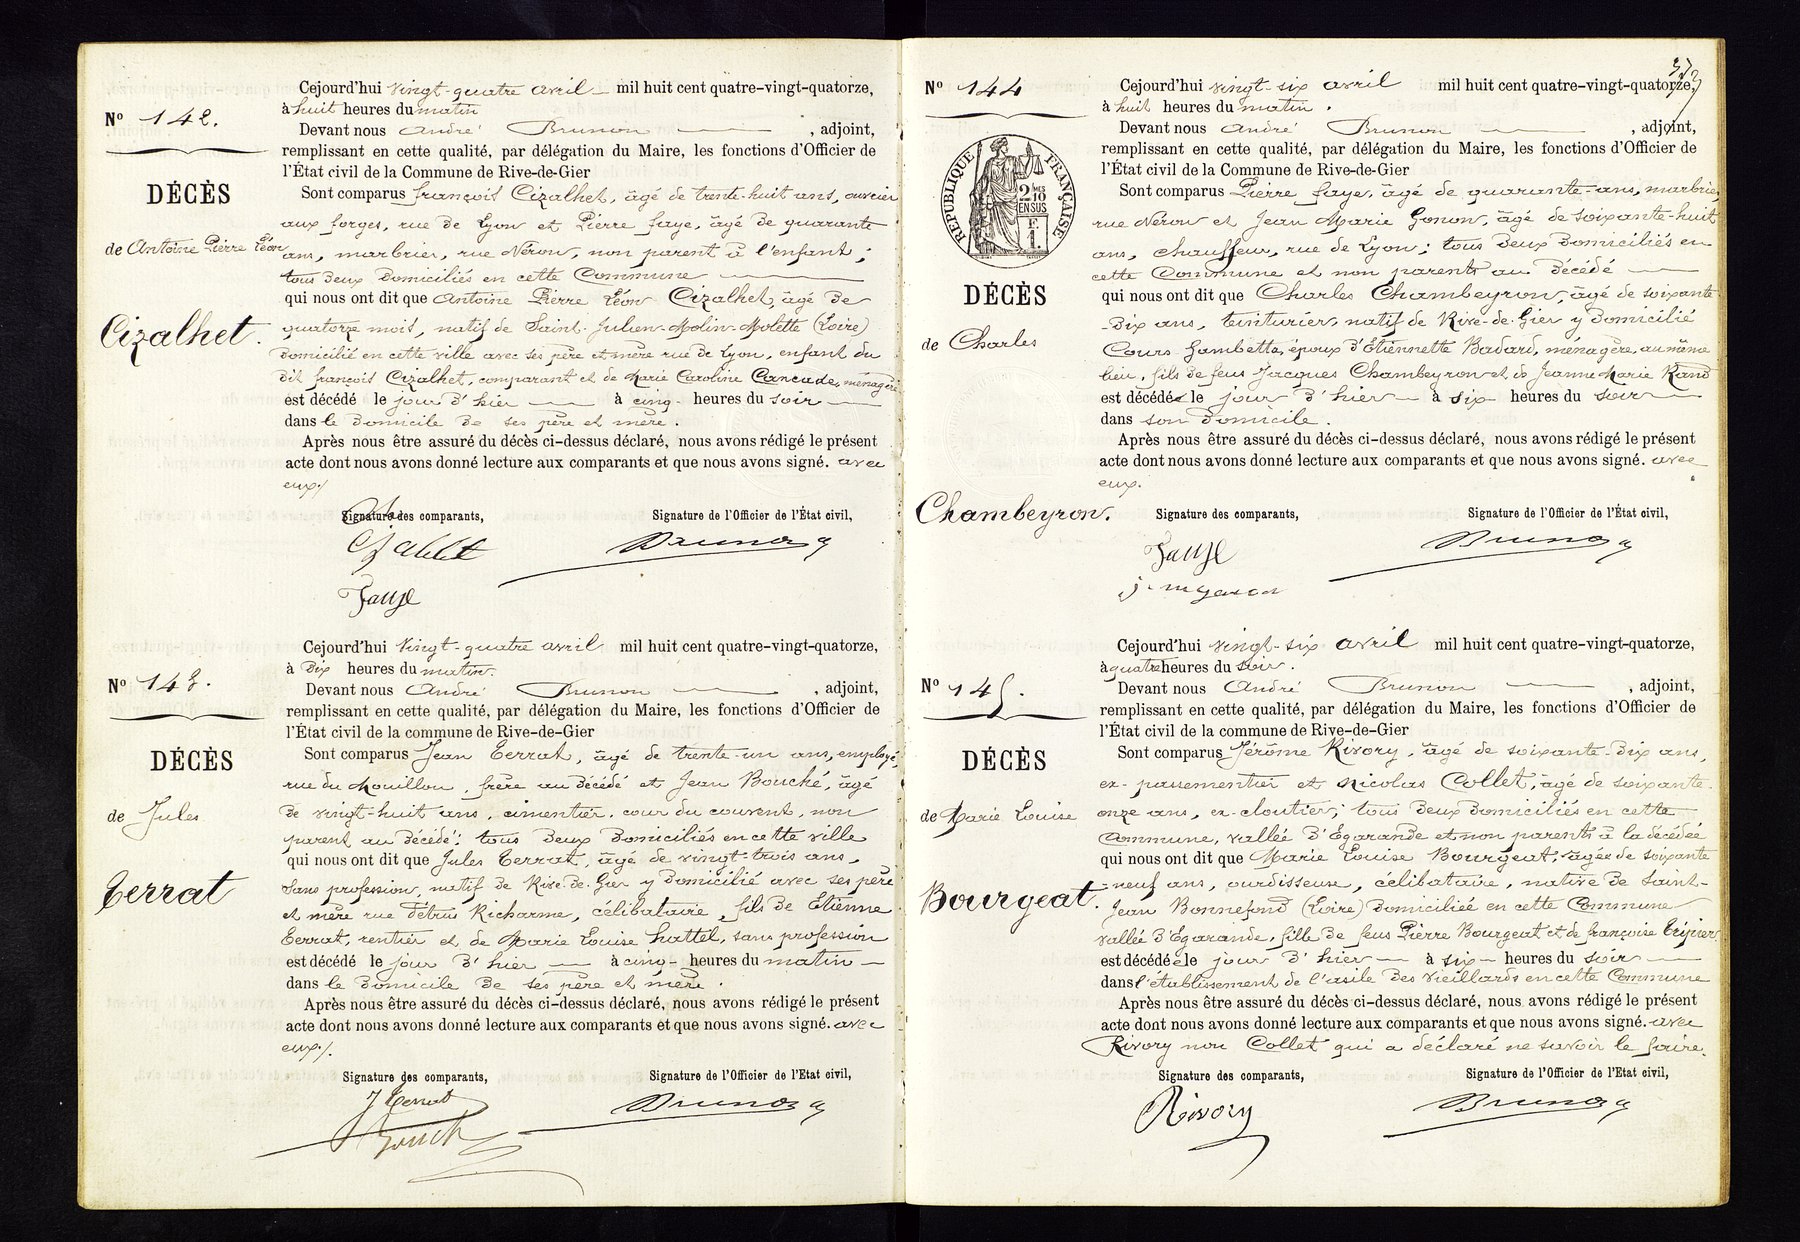 Nº 142.
DÉCÈS
de Antoine Pierre Léon
Cizalhet.
Cejourd'hui vingt-quatre avril mil huit cent quatre-vingt-quatorze,
à huit heures du matin
Devant nous André Brunon , adjoint,
remplissant en cette qualité, par délégation du Maire, les fonctions d'Officier de
l'État civil de la Commune de Rive-de-Gier
Sont comparus françois Cizalhet, âgé de trente-huit ans, ouvrier
aux forges, rue de Lyon et Pierre faye, âgé de quarante
ans, marbrier, rue Néron, non parent à l'enfant;
tous deux domiciliés en cette Commune
qui nous ont dit que Antoine Pierre Léon Cizalhet, âgé de
quatorze mois, natif de Saint-Julien-Molin-Molette (Loire)
domicilié en cette ville avec ses père et mère rue de Lyon, enfant du
dit françois Cizalhet, comparant et de Marie Caroline Cancade, ménagère
est décédé le jour d'hier à cinq heures du soir
dans le domicile de ses père et mère.
Après nous être assuré du décès ci-dessus déclaré, nous avons rédigé le présent
acte dont nous avons donné lecture aux comparants et que nous avons signé. avec
eux./
Signature des comparants, Signature de l'Officier de l'État civil,
Cizalhet Brunon
Faye
Nº 143.
DÉCÈS
de Jules
Terrat
Cejourd'hui vingt-quatre avril mil huit cent quatre-vingt-quatorze,
à dix heures du matin.
Devant nous André Brunon , adjoint,
remplissant en cette qualité, par délégation du Maire, les fonctions d'Officier de
l'État civil de la commune de Rive-de-Gier
Sont comparus Jean Terrat, âgé de trente-un ans, employé,
rue du Mouillon, frère au décédé et Jean Bouché, âgé
de vingt-huit ans, cimentier, cour du couvent, non
parent au décédé; tous deux domiciliés en cette ville
qui nous ont dit que Jules Terrat, âgé de vingt-trois ans,
sans profession, natif de Rive-de-Gier y domicilié avec ses père
et mère rue Pétrus Richarme, célibataire, fils de Etienne
Terrat, rentier et de Marie Louise hattel, sans profession
est décédé le jour d'hier à cinq heures du matin
dans le domicile de ses père et mère.
Après nous être assuré du décès ci-dessus déclaré, nous avons rédigé le présent
acte dont nous avons donné lecture aux comparants et que nous avons signé. avec
eux./.
Signature des comparants, Signature de l'Officier de l'Etat civil,
J Terrat Brunon
Bouch
Nº 144
RÉPUBLIQUE FRANÇAISE
2/10 EN SUS
1 F.
DÉCÈS
de Charles
Chambeyron.
Cejourd'hui vingt-six avril mil huit cent quatre-vingt-quatorze,
à huit heures du matin.
Devant nous André Brunon , adjoint,
remplissant en cette qualité, par délégation du Maire, les fonctions d'Officier de
l'État civil de la Commune de Rive-de-Gier
Sont comparus Pierre faye, âgé de quarante-ans, marbrier,
rue Néron et Jean Marie Gonon, âgé de soixante-huit
ans, chauffeur, rue de Lyon; tous deux domiciliés en
cette Commune et non parents au décédé
qui nous ont dit que Charles Chambeyron, âgé de soixante
-dix ans, teinturier, natif de Rive-de-Gier y domicilié
Cours Gambetta, époux d'Etiennette Badard, ménagère, au même
lieu, fils de feus Jacques Chambeyron et de Jeanne Marie Rand
est décédé le jour d'hier à six heures du soir
dans son domicile.
Après nous être assuré du décès ci-dessus déclaré, nous avons rédigé le présent
acte dont nous avons donné lecture aux comparants et que nous avons signé. avec
eux.
Signature des comparants, Signature de l'Officier de l'État civil,
Faye Brunon
j. m gonon
Nº 145.
DÉCÈS
de Marie Louise
Bourgeat.
Cejourd'hui vingt-six avril mil huit cent quatre-vingt-quatorze,
à quatre heures du soir.
Devant nous André Brunon , adjoint,
remplissant en cette qualité, par délégation du Maire, les fonctions d'Officier de
l'État civil de la commune de Rive-de-Gier
Sont comparus Jérôme Rivory, âgé de soixante-dix ans,
ex-passementier et Nicolas Collet, âgé de soixante-
onze ans, ex-cloutier; tous deux domiciliés en cette
Commune, vallée d'Egarande et non parents à la décédée
qui nous ont dit que Marie Louise Bourgeat, âgée de soixante
-neuf ans, ourdisseuse, célibataire, native de Saint-
Jean Bonnefond (Loire) domiciliée en cette Commune
vallée d'Egarande, fille de feus Pierre Bourgeat et de françoise Tripier
est décédée le jour d'hier à six heures du soir
dans l'établissement de l'asile des vieillards en cette Commune
Après nous être assuré du décès ci-dessus déclaré, nous avons rédigé le présent
acte dont nous avons donné lecture aux comparants et que nous avons signé. avec
Rivory non Collet qui a déclaré ne savoir le faire.
Signature des comparants, Signature de l'Officier de l'Etat civil,
Rivory Brunon